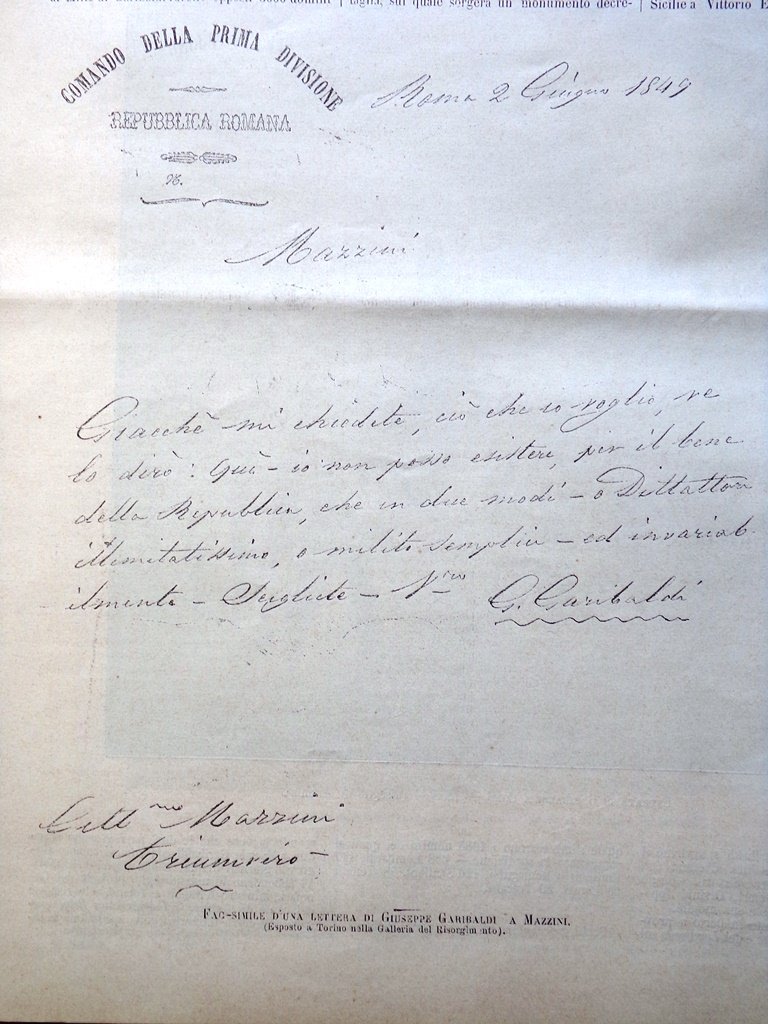 taglia, sul quale sorgerà un monumento decre-
Sicilie a Vittorio E
COMANDO DELLA PRIMA DIVISIONE
REPUBBLICA ROMANA
N.
Roma 2 Giugno 1849
Mazzini
Giacchè mi chiedete, ciò che io voglio, ve
lo dirò: Quì - io non posso esistere, per il bene
della Republica, che in due modi - o Dittattore
illimitatissimo, o milite semplice - ed invariab
ilmente - Scegliete - V.ro G. Garibaldi
Mazzini
Triumviro -
FAC-SIMILE D'UNA LETTERA DI GIUSEPPE GARIBALDI A MAZZINI.
(Esposto a Torino nella Galleria del Risorgimento).